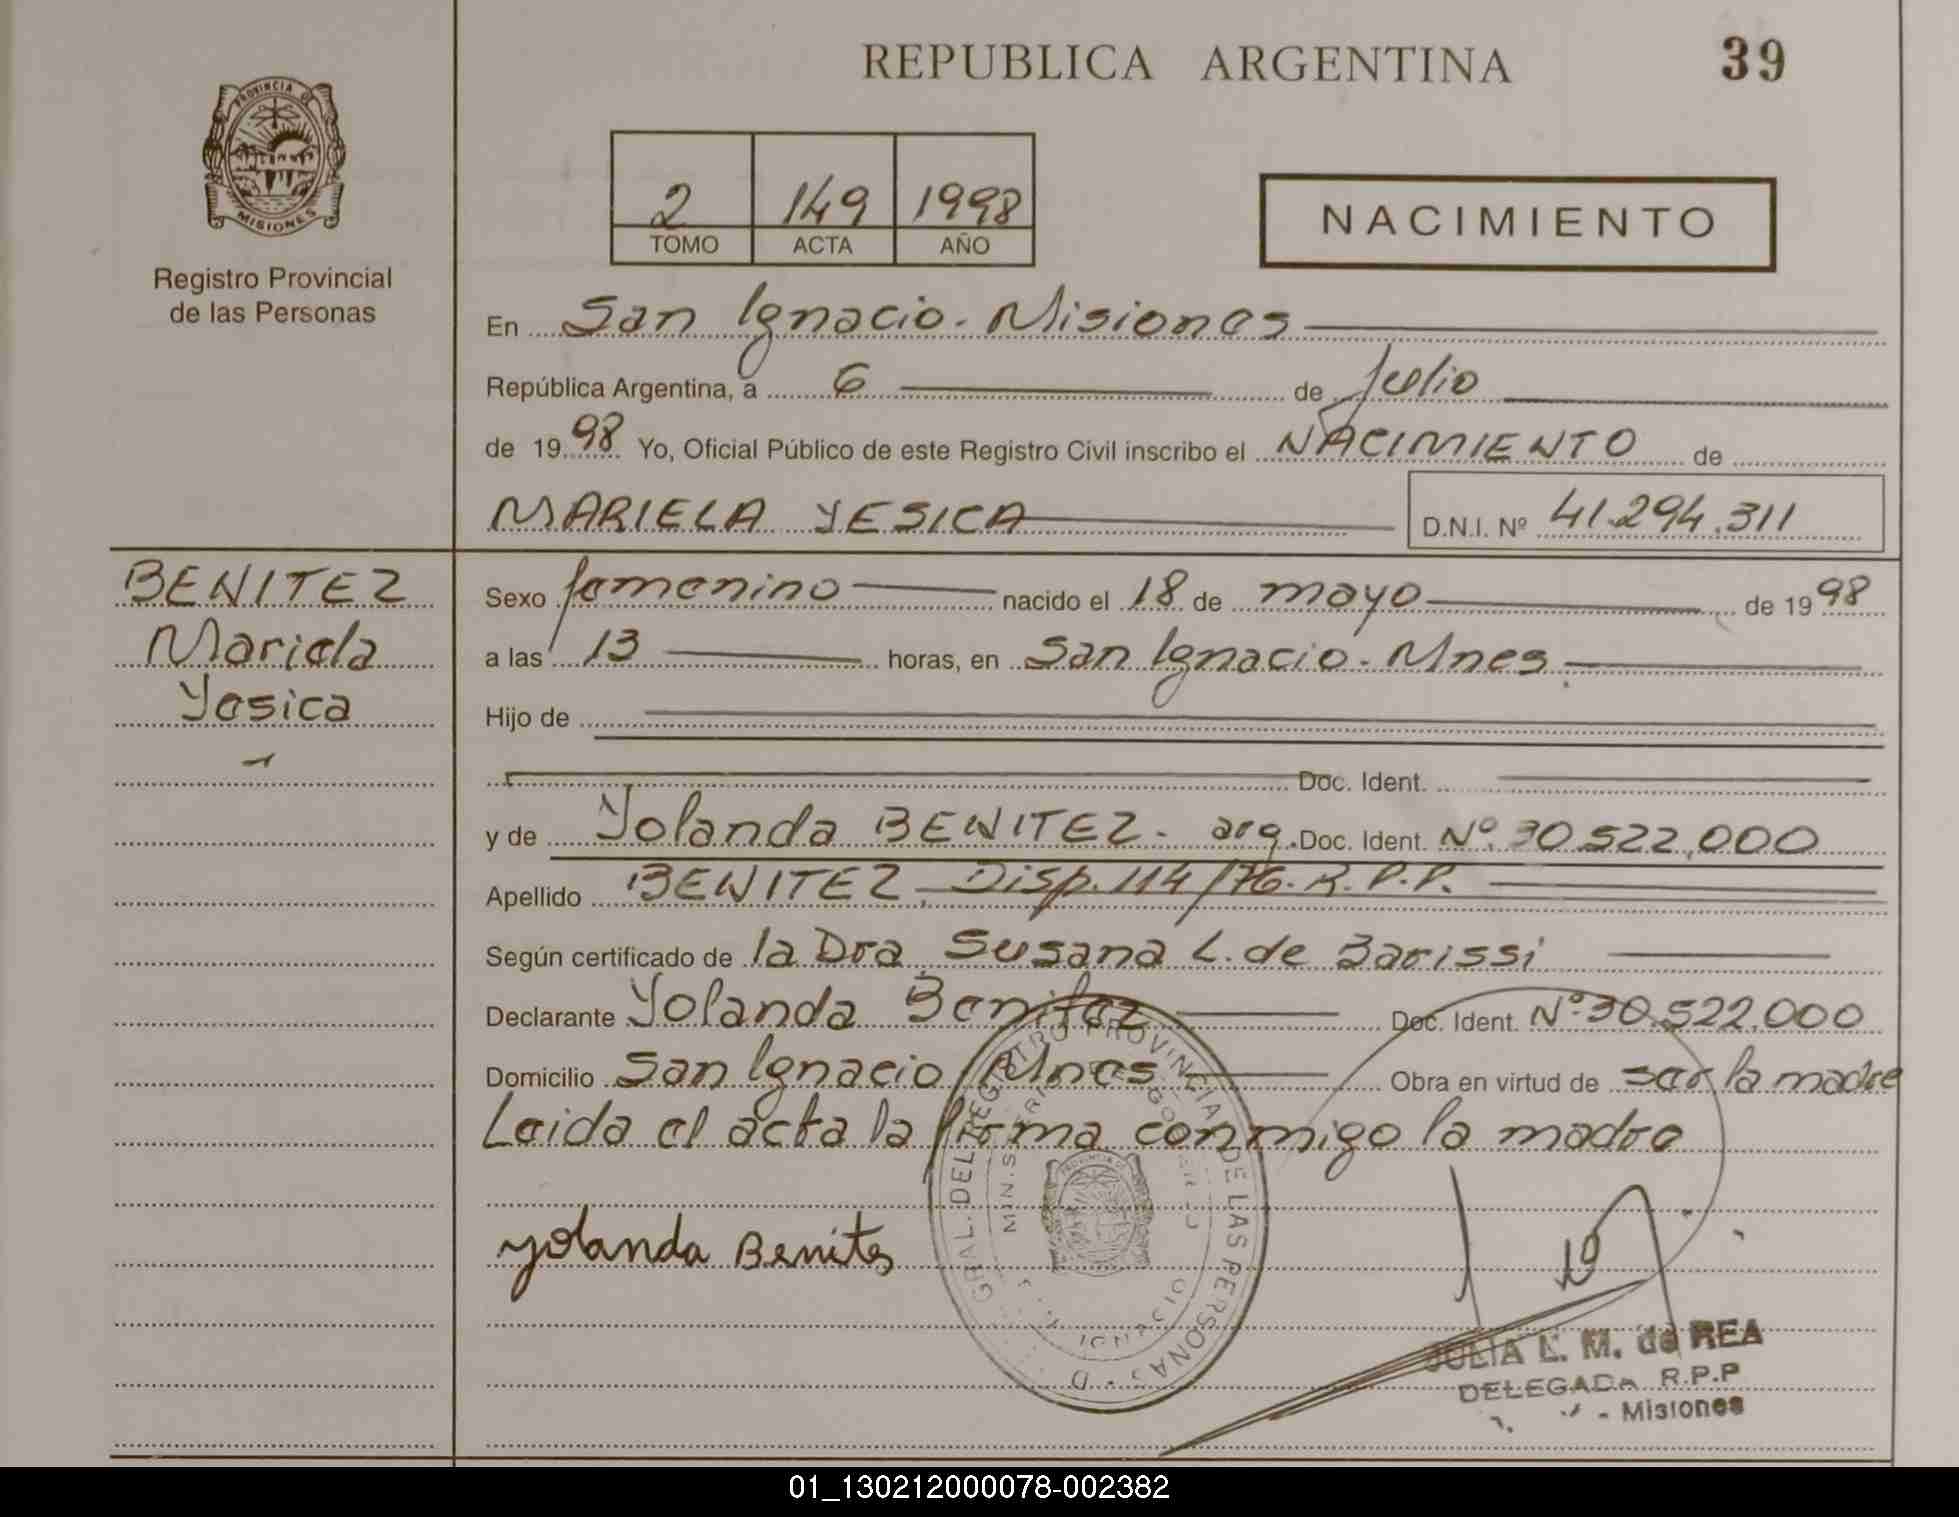 REPUBLICA ARGENTINA 39
PROVINCIA DE
MISIONES
Registro Provincial
de las Personas
2 149 1998
TOMO ACTA AÑO
NACIMIENTO
En San Ignacio - Misiones
República Argentina, a 6 de Julio
de 1998 Yo, Oficial Público de este Registro Civil inscribo el NACIMIENTO de
MARIELA YESICA D.N.I. Nº 41.294.311
BENITEZ
Mariela
Yesica
Sexo femenino nacido el 18 de mayo de 1998
a las 13 horas, en San Ignacio - Mnes.
Hijo de
Doc. Ident.
y de Yolanda BENITEZ - arg. Doc. Ident. Nº 30.522.000
Apellido BENITEZ. Disp. 114/76. R.P.P.
Según certificado de la Dra Susana L. de Barissi
Declarante Yolanda Benitez Doc. Ident. Nº 30.522.000
Domicilio San Ignacio Mnes Obra en virtud de ser la madre
Leida el acta la firma conmigo la madre
Yolanda Benites
GRAL. DEL REGISTRO PROVINCIAL DE LAS PERSONAS
JULIA E. M. de REA
DELEGADA R.P.P
- Misiones
01_130212000078-002382